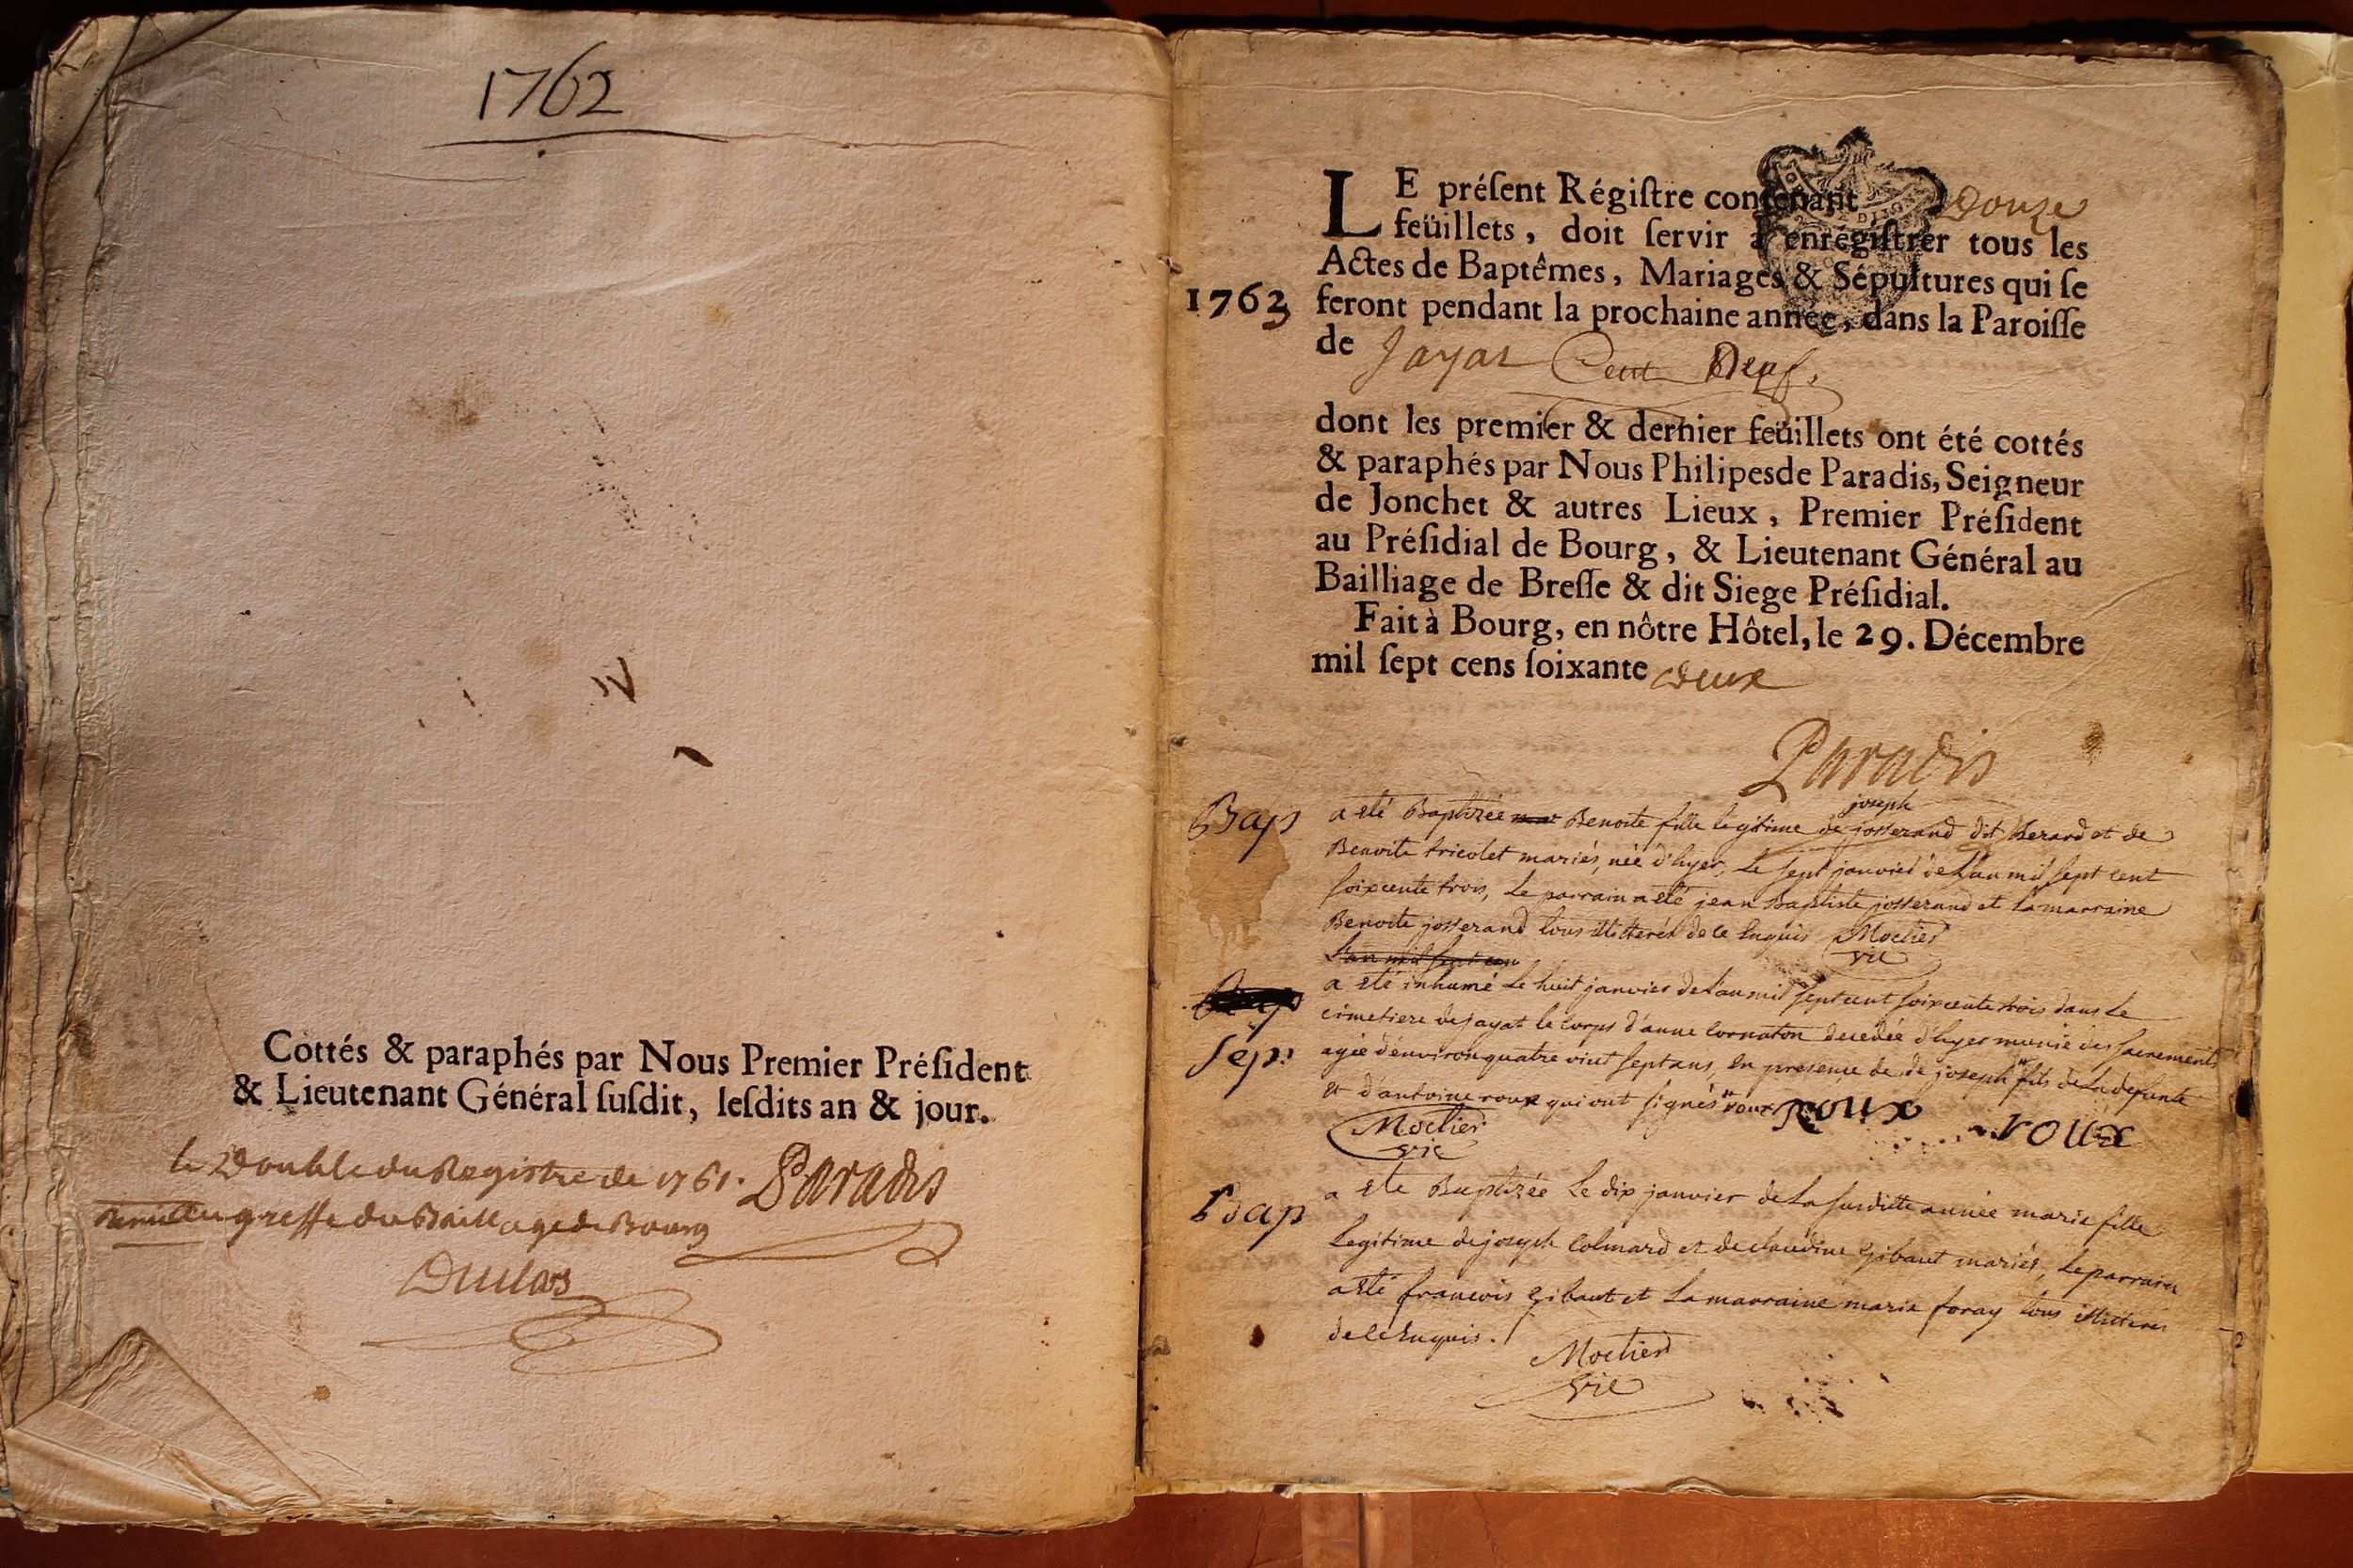 1762
Cottés & paraphés par Nous Premier Préſident
& Lieutenant Général ſuſdit, leſdits an & jour.
le Double du Registre de 1761. Paradis
remis au greffe du Bailliage de Bourg
Dulas
LE préſent Régiſtre contenant Douze
feüillets, doit ſervir à enrégiſtrer tous les
Actes de Baptêmes, Mariages & Sépultures qui ſe
1763 feront pendant la prochaine année, dans la Paroiſſe
de Jayat Cent Neuf.
dont les premier & dernier feüillets ont été cottés
& paraphés par Nous Philipes de Paradis, Seigneur
de Jonchet & autres Lieux, Premier Préſident
au Préſidial de Bourg, & Lieutenant Général au
Bailliage de Breſſe & dit Siege Préſidial.
Fait à Bourg, en nôtre Hôtel, le 29. Décembre
mil ſept cens ſoixante deux
Paradis
joseph
Bap a été Baptizée Benoite fille legitime de josserand dit Berard et de
Benoite tricolet mariés, née d'hyer, le sept janvier de L'an mil sept cent
soixcente trois, Le parrain a été jean Baptiste josserand et La marraine
Benoite josserand tous illitterés de ce Enquis Moctier
vic
L'an mil sept cen
a été inhumé Le huit janvier de L'an mil sept cent soixcente trois dans Le
cimetiere de jayat le corps d'anne cornaton decedée d'hyer munie des sacrements
Sep. agée d'environ quatre vint sept ans, en presence de de joseph fils de La defunte
et d'antoine roux qui ont signés roux roux roux
Moctier
vic
Bap a été Baptizée Le dix janvier de La susditte année marie fille
Legitime de joseph Colmard et de claudine Gibaut mariés, Le parrain
a été francois Gibaut et La marraine marie foray tous illitterés
de ce Enquis.
Moctier
vic